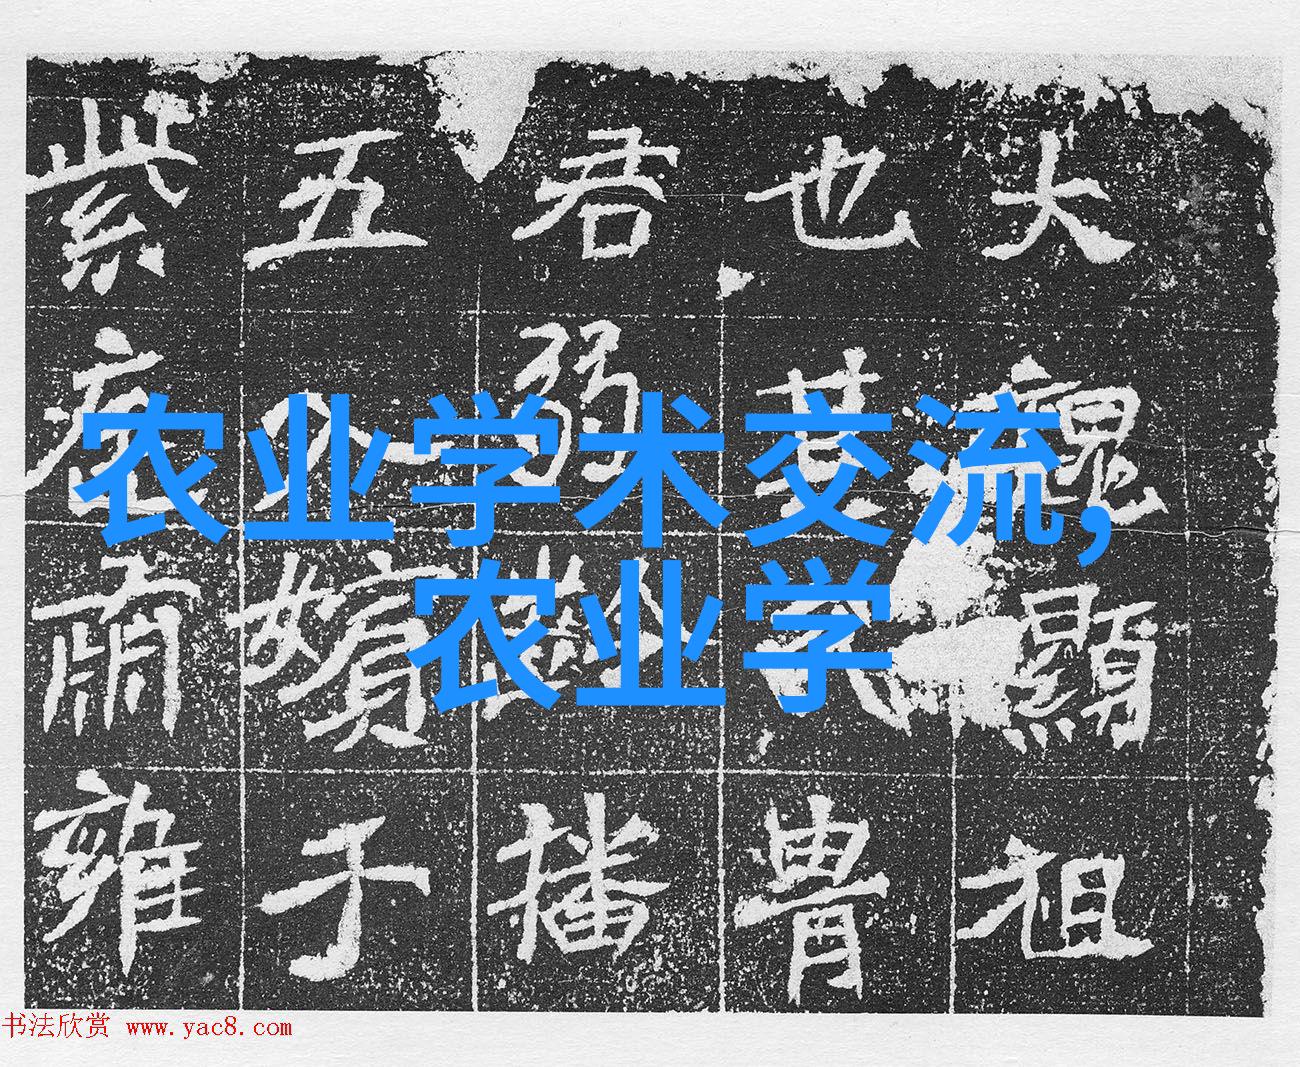 大魏顯祖
也其胄
君弱齡播
五外嬪于
紫庭肅雍
农业学术交流,
农业学
书法欣赏 www.yac8.com